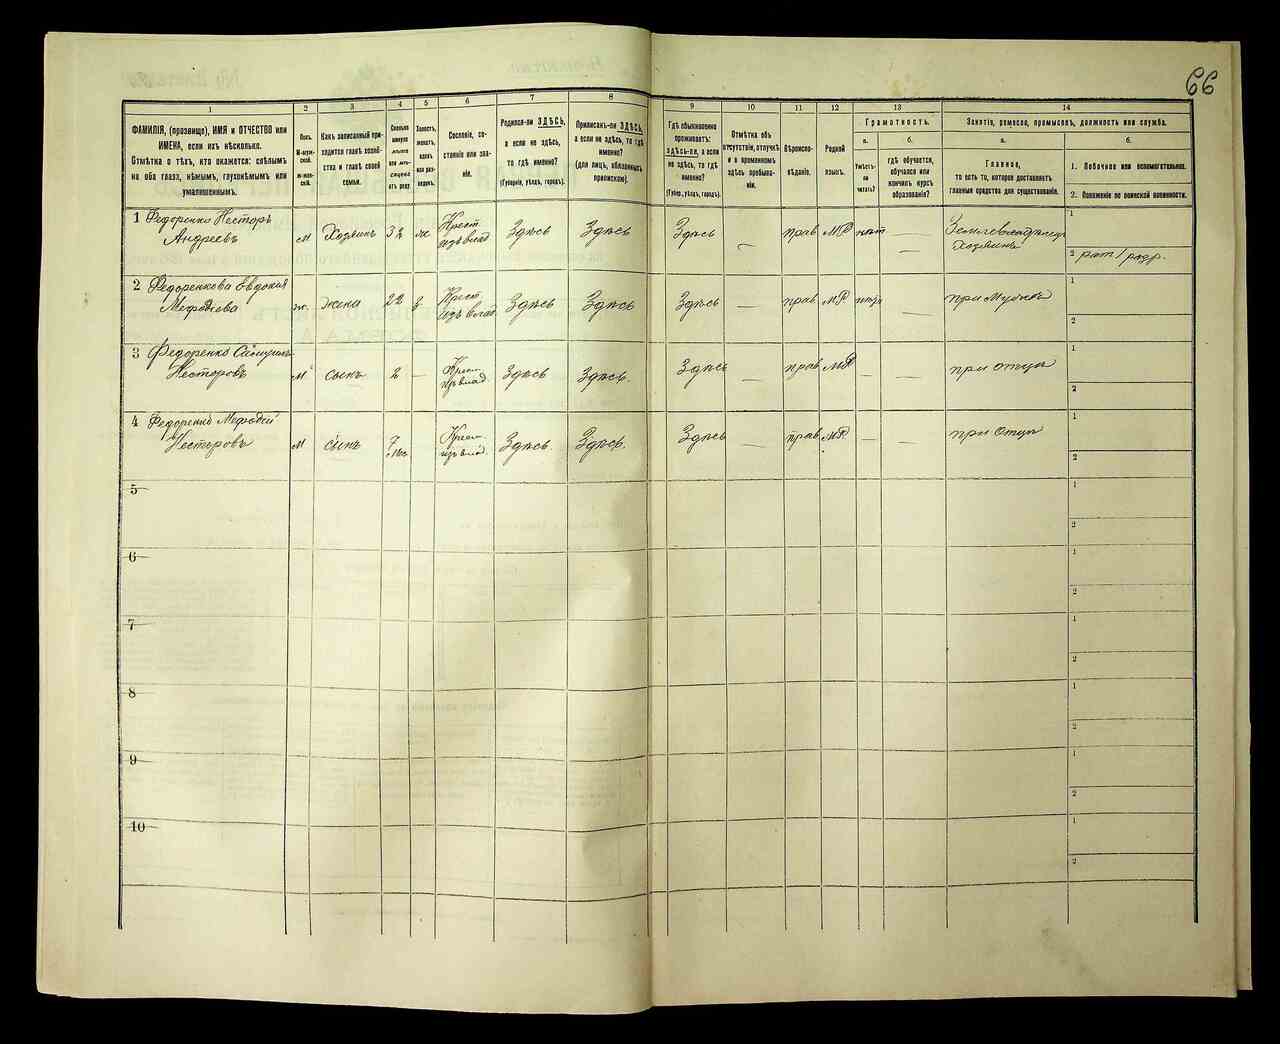 66
1 2 3 4 5 6 7 8 9 10 11 12 13 14
ФАМИЛІЯ, (прозвище), ИМЯ и ОТЧЕСТВО или
ИМЕНА, если ихъ нѣсколько.
Отмѣтка о тѣхъ, кто окажется: слѣпымъ
на оба глаза, нѣмымъ, глухонѣмымъ или
умалишеннымъ.
Полъ.
М-муж-
ской.
Ж-жен-
скій.
Какъ записанный при-
ходится главѣ хозяй-
ства и главѣ своей
семьи.
Сколько
минуло
лѣтъ
или мѣ-
сяцевъ
отъ роду
Холостъ,
женатъ,
вдовъ
или раз-
веденъ.
Сословіе, со-
стояніе или зва-
ніе.
Родился-ли ЗДѢСЬ,
а если не здѣсь,
то гдѣ именно?
(Губернія, уѣздъ, городъ).
Приписанъ-ли ЗДѢСЬ,
а если не здѣсь, то гдѣ
именно?
(для лицъ, обязанныхъ
припискою).
Гдѣ обыкновенно
проживаетъ:
здѣсь-ли, а если
не здѣсь, то гдѣ
именно?
(Губер., уѣздъ, городъ).
Отмѣтка объ
отсутствіи, отлучкѣ
и о временномъ
здѣсь пребыва-
ніи.
Вѣроиспо-
вѣданіе.
Родной
языкъ.
Грамотность.
а.
Умѣетъ-
ли
читать?
б.
гдѣ обучается,
обучался или
кончилъ курсъ
образованія?
Занятіе, ремесло, промыселъ, должность или служба.
а.
Главное,
то есть то, которое доставляетъ
главныя средства для существованія.
б.
1. Побочное или вспомогательное.
2. Положеніе по воинской повинности.
1 Федоренко Несторъ
Андреевъ м Хозяинъ 32 ж Крест. изъ влад Здѣсь Здѣсь Здѣсь — прав МР нѣтъ — Землевладѣлецъ Хозяинъ 1
2
2 Федоренкова Евдокия
Мефодіева ж. жена 22 Крест. изъ влад Здѣсь Здѣсь Здѣсь — прав МР — при Мужѣ 1
2
3 Федоренко
Несторовъ м сынъ 2 — Крест. изъ влад. Здѣсь Здѣсь. Здѣсь — прав МР — — при отцѣ 1
2
4 Федоренко Мефодей
Несторовъ м сынъ 7 мѣс Крест. изъ влад. Здѣсь. Здѣсь. Здѣсь — прав МР — — при Отцѣ 1
2
5 1
2
6 1
2
7 1
2
8 1
2
9 1
2
10 1
2